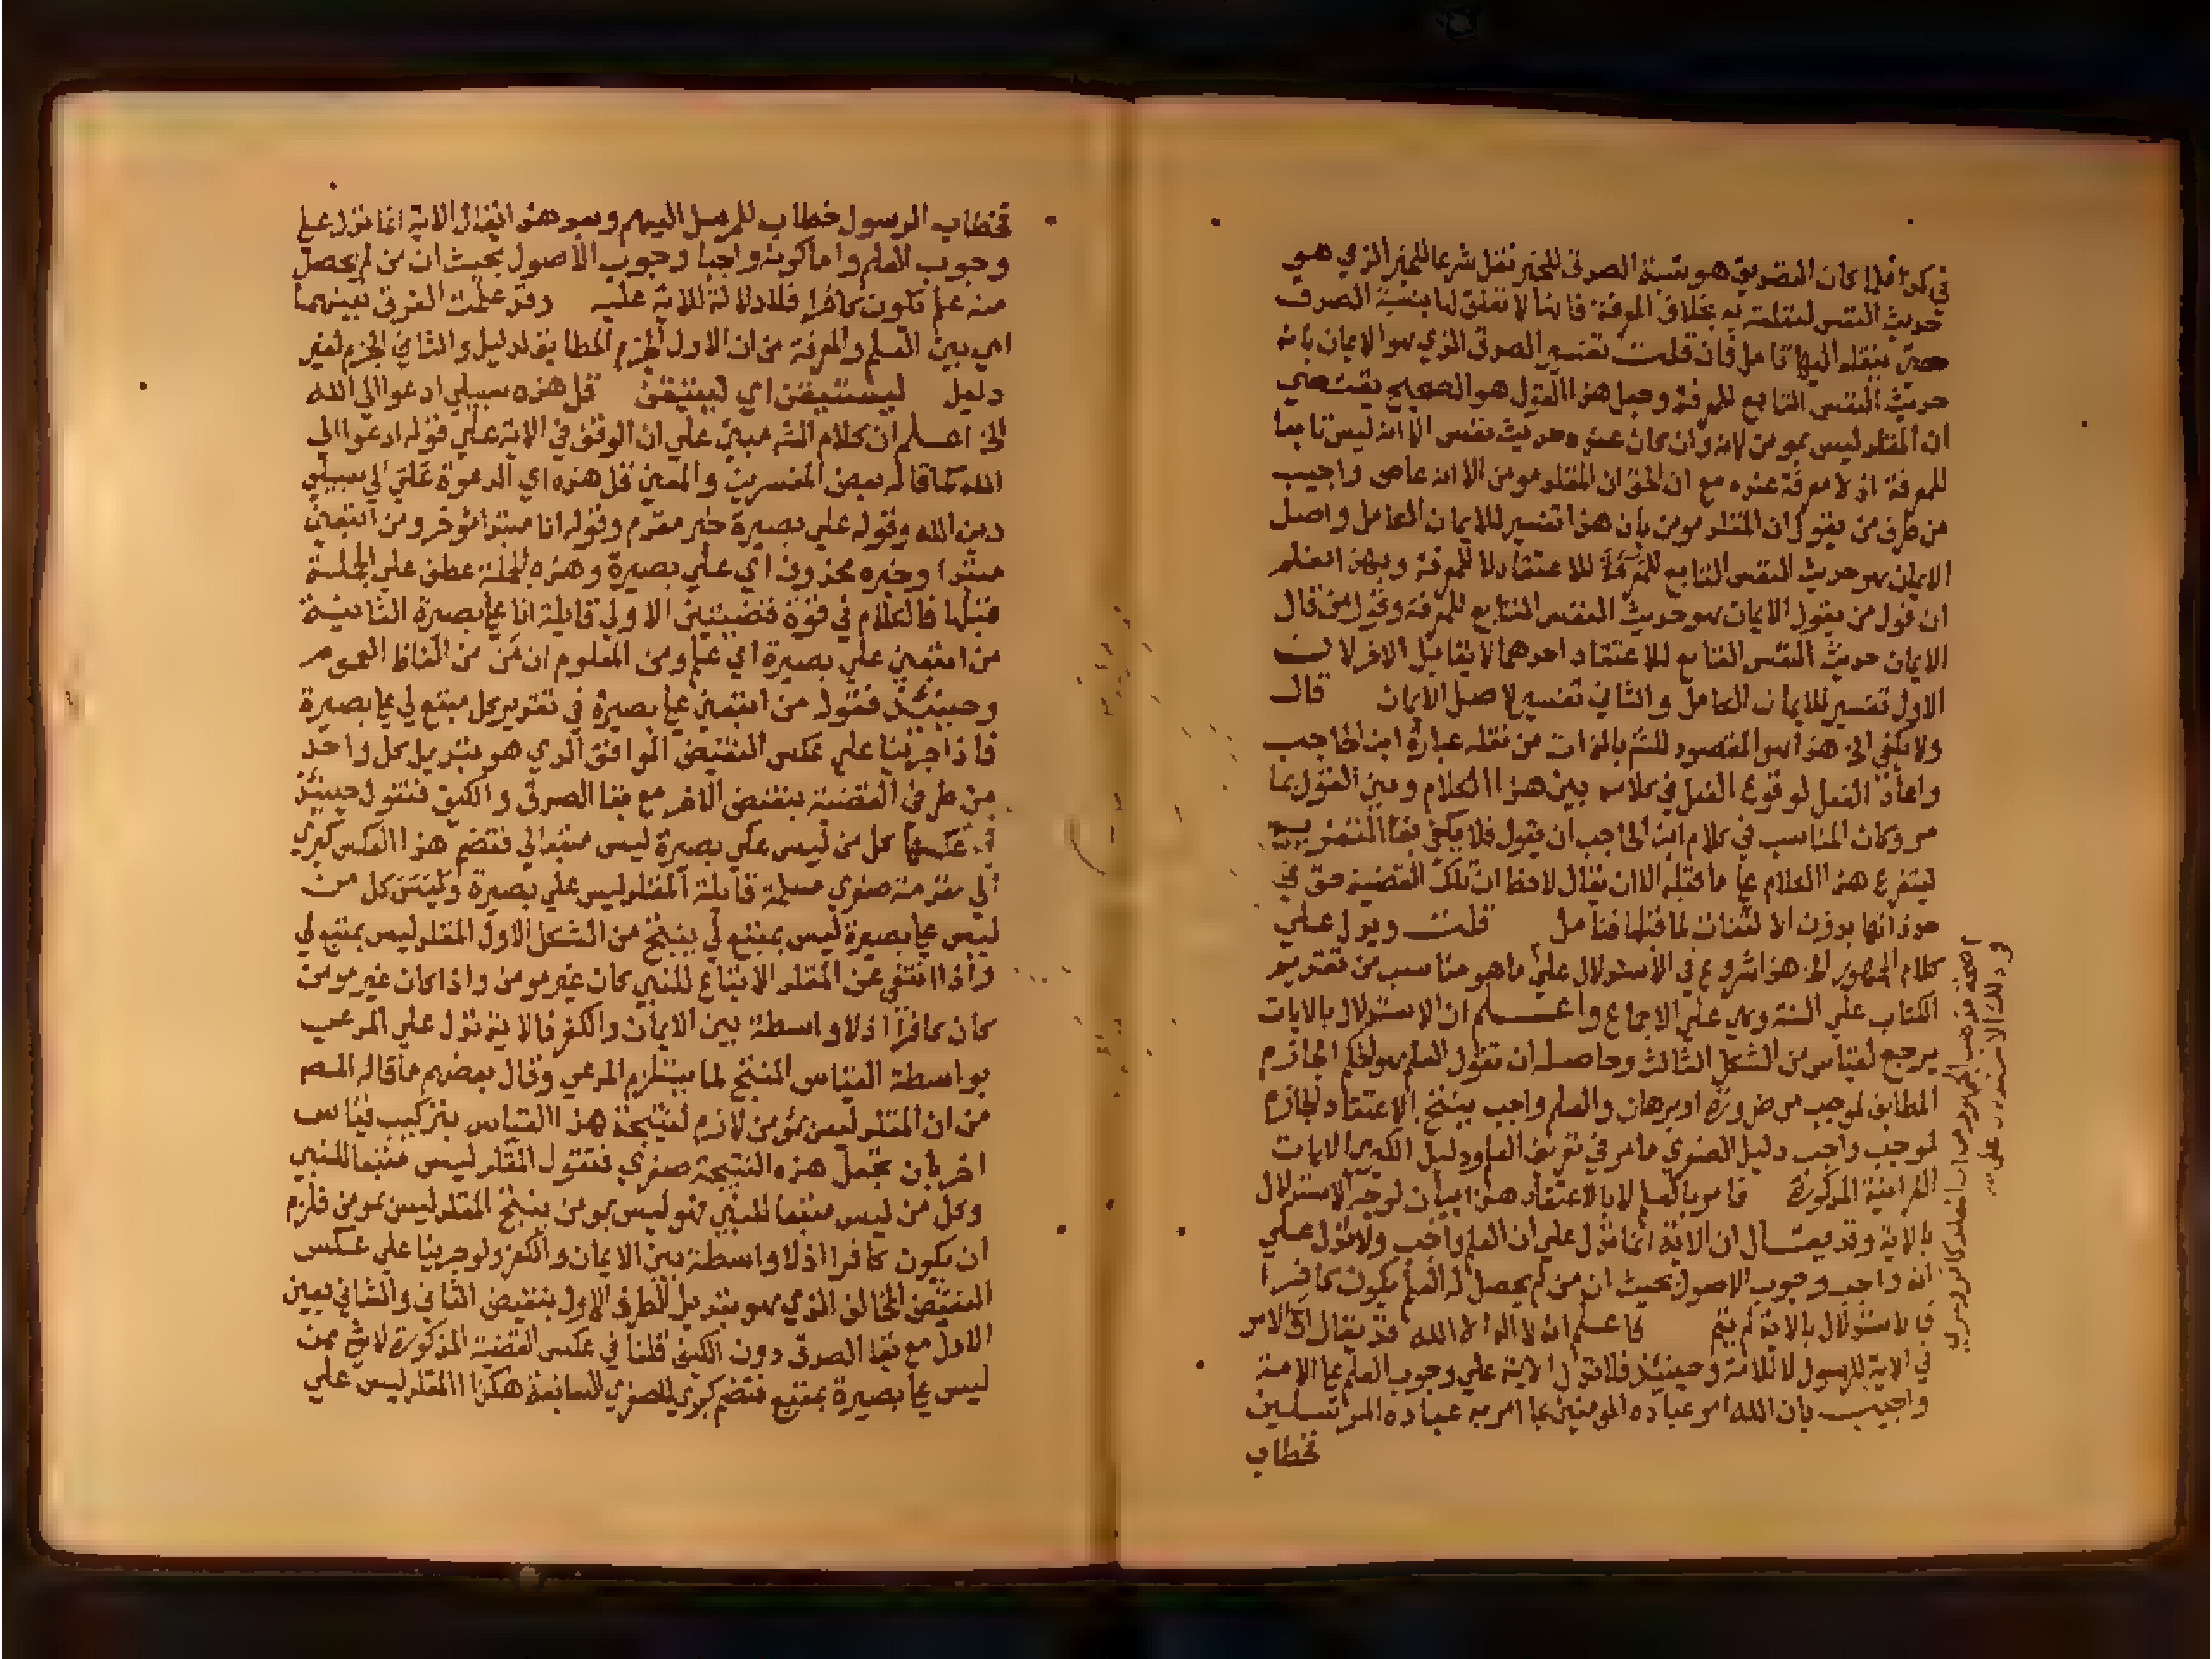 في كذا فلما كان التصديق هو نسبة الصدق للمخبر نقل شرعا للخبر الذي هو
حديث النفس لتعلقه به بخلاف المعرفة فانها لا تعلق لها بنسبة الصدق
حتى ينقلو اليها تامل فان قلت تفسير الصدق الذي هو الايمان بانه
حديث النفس التابع للمعرفة وجعل هذا القول هو الصحيح يقتضي
ان المقلد ليس بمومن لانه وان كان عنده حديث نفس الا انه ليس تابعا
للمعرفة اذ لا معرفة عنده مع ان الحق ان المقلد مومن الا انه عاص واجيب
من طرف من يقول ان المقلد مومن بان هذا تفسير للايمان الكامل واصل
الايمان هو حديث النفس التابع للاعتقاد لا للمعرفة وبهذا تعلم
ان قول من يقول الايمان هو حديث النفس التابع للمعرفة وقول من قال
الايمان حديث النفس التابع للاعتقاد احدهما لا يقابل الاخر لان
الاول تفسير للايمان الكامل والثاني تفسير لاصل الايمان قال
ولا يكفي الخ هذا هو المقصود للش بالذات من نقله عبارة ابن الحاجب
واعاد الفعل لوقوع الفصل في كلامه بين هذا الكلام وبين القول بما
مر وكان المناسب في كلام ابن الحاجب ان يقول فلا يكفي
ليتفرع هذا الكلام على ما قبله الا ان يقال لاحظ ان تلك القضية حق في
حد ذاتها بدون الالتفات لما قبلها فتامل قلت ويدل على
كلام الجمهور الخ هذا شروع في الاستدلال على ما هو مناسب من تقديم
الكتاب على السنة وهي على الاجماع واعلم ان الاستدلال بالايات
يرجع لقياس من الشكل الثالث وحاصله ان تقول العلم هو الحكم الجازم
المطابق لموجب من ضرورة او برهان والعلم واجب ينتج الاعتقاد الجازم
لموجب واجب دليل الصغرى ما مر في تعريف العلم ودليل الكبرى الايات
القرانية المذكورة فامر بالعلم لا بالاعتقاد هذا بيان لوجه الاستدلال
بالاية وقد يقال ان الاية انما تدل على ان العلم واجب ولا تدل على
انه واجب وجوب الاصول بحيث ان من لم يحصل له العلم يكون كافرا
فالاستدلال بالاية لم يتم فاعلم انه لا اله الا الله قد يقال ان الامر
في الاية للرسول لا للامة وحينئذ فلا تدل الاية على وجوب العلم على الامة
واجيب بان الله امر عباده المومنين بما امر به عباده المرسلين
فخطاب
فخطاب الرسول خطاب للمرسل اليهم وبعد هذا يقال الاية انما تدل على
وجوب العلم واما كونه واجبا وجوب الاصول بحيث ان من لم يحصل
منه علم يكون كافرا فلا دلالة للاية عليه وقد علمت الفرق بينهما
اي بين العلم والمعرفة من ان الاول الجزم المطابق لدليل والثاني الجزم لغير
دليل ليستيقن اي ليتيقن قل هذه سبيلي ادعوا الى الله
الخ اعلم ان كلام الش مبني على ان الوقف في الاية على قوله ادعوا الى
الله كما قاله بعض المفسرين والمعنى قل هذه اي الدعوة سبيلي
دين الله وقوله على بصيرة خبر مقدم وقوله انا مبتدا موخر ومن اتبعني
مبتدا وخبره محذوف اي على بصيرة وهذه الجملة عطف على الجملة
قبلها فالكلام في قوة قضيتين الاولى قايلة انا على بصيرة الثانية
من اتبعني على بصيرة اي علم ومن المعلوم ان من من الفاظ العموم
وحينئذ فقوله من اتبعني على بصيرة في تقدير كل متبع لي على بصيرة
فاذا جرينا على عكس النقيض الموافق الذي هو تبديل كل واحد
من طرفي القضية بنقيض الاخر مع بقا الصدق والكيف فنقول حينئذ
في عكسها كل من ليس على بصيرة ليس متبعا لي فتضم هذا العكس كبرى
الي مقدمة صغرى مسلمة قايلة المقلد ليس على بصيرة وكل من
ليس على بصيرة ليس بمتبع لي ينتج من الشكل الاول المقلد ليس بمتبع لي
واذا انتفى عن المقلد الاتباع للنبي كان غير مومن واذا كان غير مومن
كان كافرا اذ لا واسطة بين الايمان والكفر فالاية تدل على المدعي
بواسطة القياس المنتج لما يستلزم المدعي وقال بعضهم ما قاله المص
من ان المقلد ليس بمؤمن لازم لنتيجة هذا القياس بتركيب قياس
اخر بان تجعل هذه النتيجة صغرى فتقول المقلد ليس متبعا للنبي
وكل من ليس متبعا للنبي فهو ليس بمومن ينتج المقلد ليس بمومن فلزم
ان يكون كافرا اذ لا واسطة بين الايمان والكفر ولو جرينا على عكس
النقيض المخالف الذي هو تبديل الطرف الاول بنقيض الثاني والثاني بعين
الاول مع بقا الصدق دون الكيف قلنا في عكس القضية المذكورة لا شي ممن
ليس على بصيرة بمتبع فتضم كبرى للصغرى السابقة هكذا المقلد ليس على